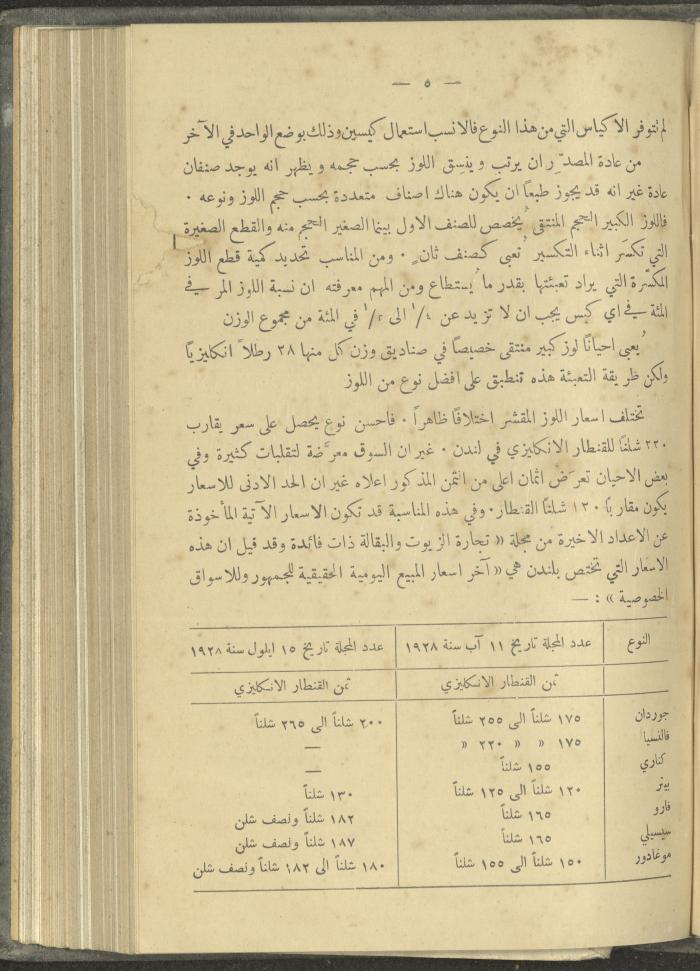 — ٥ —
لم تتوفر الأكياس التي من هذا النوع فالانسب استعمال كيسين وذلك بوضع الواحد في الآخر
من عادة المصدّر ان يرتب وينسق اللوز بحسب حجمه ويظهر انه يوجد صنفان
عادة غير انه قد يجوز طبعاً ان يكون هناك اصناف متعددة بحسب حجم اللوز ونوعه ٠
فاللوز الكبير الحجم المنتقى يُخصص للصنف الاول بينما الصغير الحجم منه والقطع الصغيرة
التي تكسَر اثناء التكسير تُعبى كصنف ثانٍ ٠ ومن المناسب تحديد كمية قطع اللوز
المكسّرة التي يراد تعبئتها بقدر ما يُستطاع ومن المهم معرفته ان نسبة اللوز المر في
المئة في اي كيس يجب ان لا تزيد عن ١/٤ الى ١/٢ في المئة من مجموع الوزن
يُعبى احياناً لوز كبير منتقى خصيصاً في صناديق وزن كل منها ٢٨ رطلاً انكليزياً
ولكن طريقة التعبئة هذه تنطبق على افضل نوع من اللوز
تختلف اسعار اللوز المقشر اختلافاً ظاهراً ٠ فاحسن نوع يحصل على سعر يقارب
٢٢٠ شلناً للقنطار الانكليزي في لندن ٠ غير ان السوق معرَّضة لتقلبات كثيرة وفي
بعض الاحيان تعرَض اثمان اعلى من الثمن المذكور اعلاه غير ان الحد الادنى للاسعار
يكون مقارباً ١٣٠ شلناً القنطار٠ وفي هذه المناسبة قد تكون الاسعار الآتية المأخوذة
عن الاعداد الاخيرة من مجلة « تجارة الزيوت والبقالة ذات فائدة وقد قيل ان هذه
الاسعار التي تختص بلندن هي « آخر اسعار المبيع اليومية الحقيقية للجمهور وللاسواق
الخصوصية » : —
النوع عدد المجلة تاريخ ١١ آب سنة ١٩٢٨ عدد المجلة تاريخ ١٥ ايلول سنة ١٩٢٨
ثمن القنطار الانكليزي ثمن القنطار الانكليزي
جوردان ١٧٥ شلناً الى ٢٥٥ شلناً ٢٠٠ شلناً الى ٢٦٥ شلناً
فالنسيا ١٧٥ » » ٢٢٠ » —
كناري ١٥٥ شلناً —
بيتر ١٢٠ شلناً الى ١٢٥ شلناً ١٣٠ شلناً
فارو ١٦٥ شلناً ١٨٢ شلناً ونصف شلن
سيسيلي ١٦٥ شلناً ١٨٧ شلناً ونصف شلن
موغادور ١٥٠ شلناً الى ١٥٥ شلناً ١٨٠ شلناً الى ١٨٢ شلناً ونصف شلن